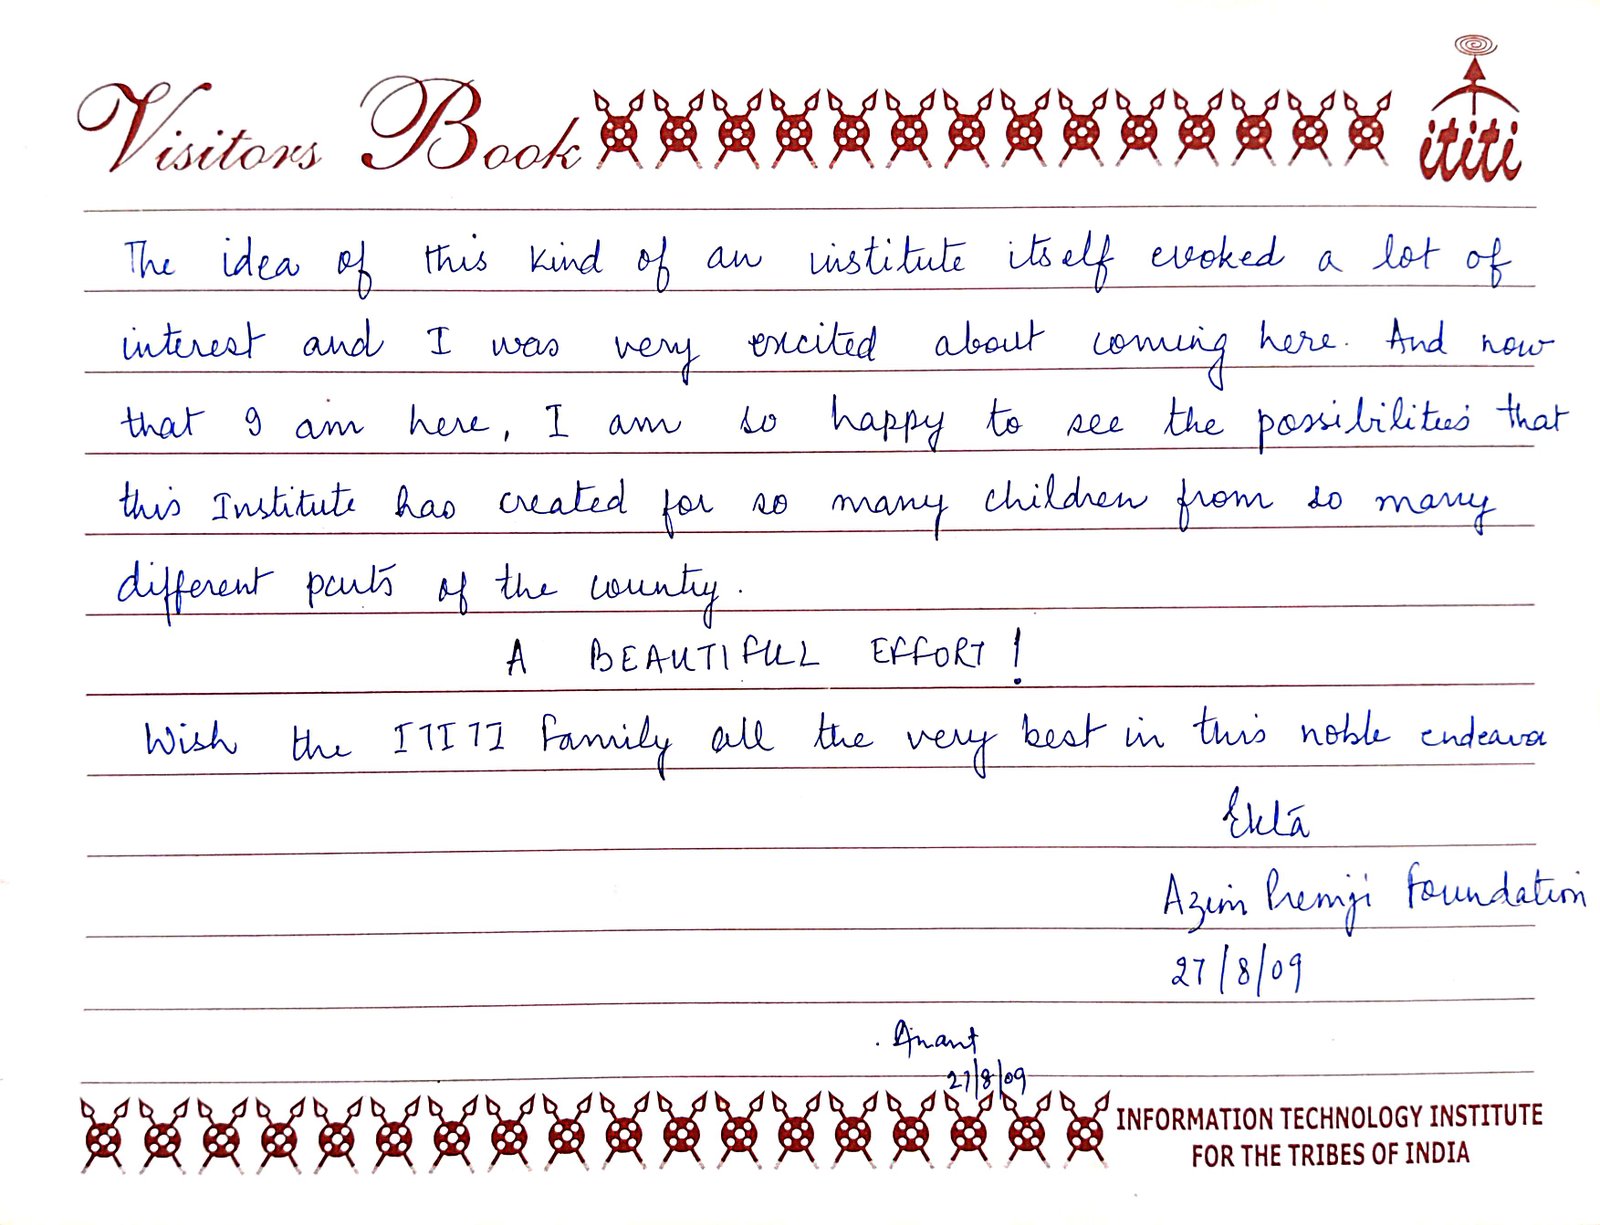 Visitors Book
ititi
The idea of this kind of an institute itself evoked a lot of
interest and I was very excited about coming here. And now
that I am here, I am so happy to see the possibilities that
this Institute has created for so many children from so many
different parts of the country.
A BEAUTIFUL EFFORT!
Wish the ITITI family all the very best in this noble endeavor
Ekta
Azim Premji Foundation
27/8/09
Anant
27/8/09
INFORMATION TECHNOLOGY INSTITUTE
FOR THE TRIBES OF INDIA